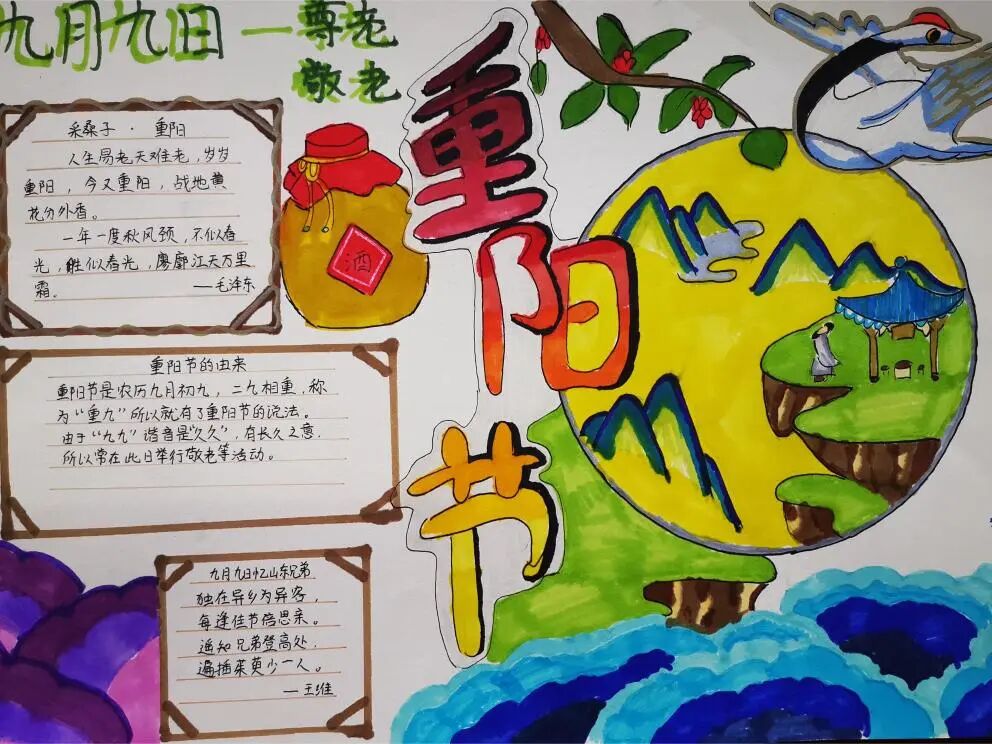 九月九日—尊老
敬老
重阳节
采桑子·重阳
人生易老天难老,岁岁
重阳,今又重阳,战地黄
花分外香。
一年一度秋风颈,不似春
光,胜似春光,廖廓江天万里
霜。
——毛泽东
酒
重阳节的由来
重阳节是农历九月初九,二九相重,称
为“重九”所以就有了重阳节的说法。
由于“九九”谐音是“久久”,有长久之意,
所以常在此日举行敬老等活动。
九月九日忆山东兄弟
独在异乡为异客,
每逢佳节倍思亲。
遥知兄弟登高处,
遍插茱萸少一人。
—王维